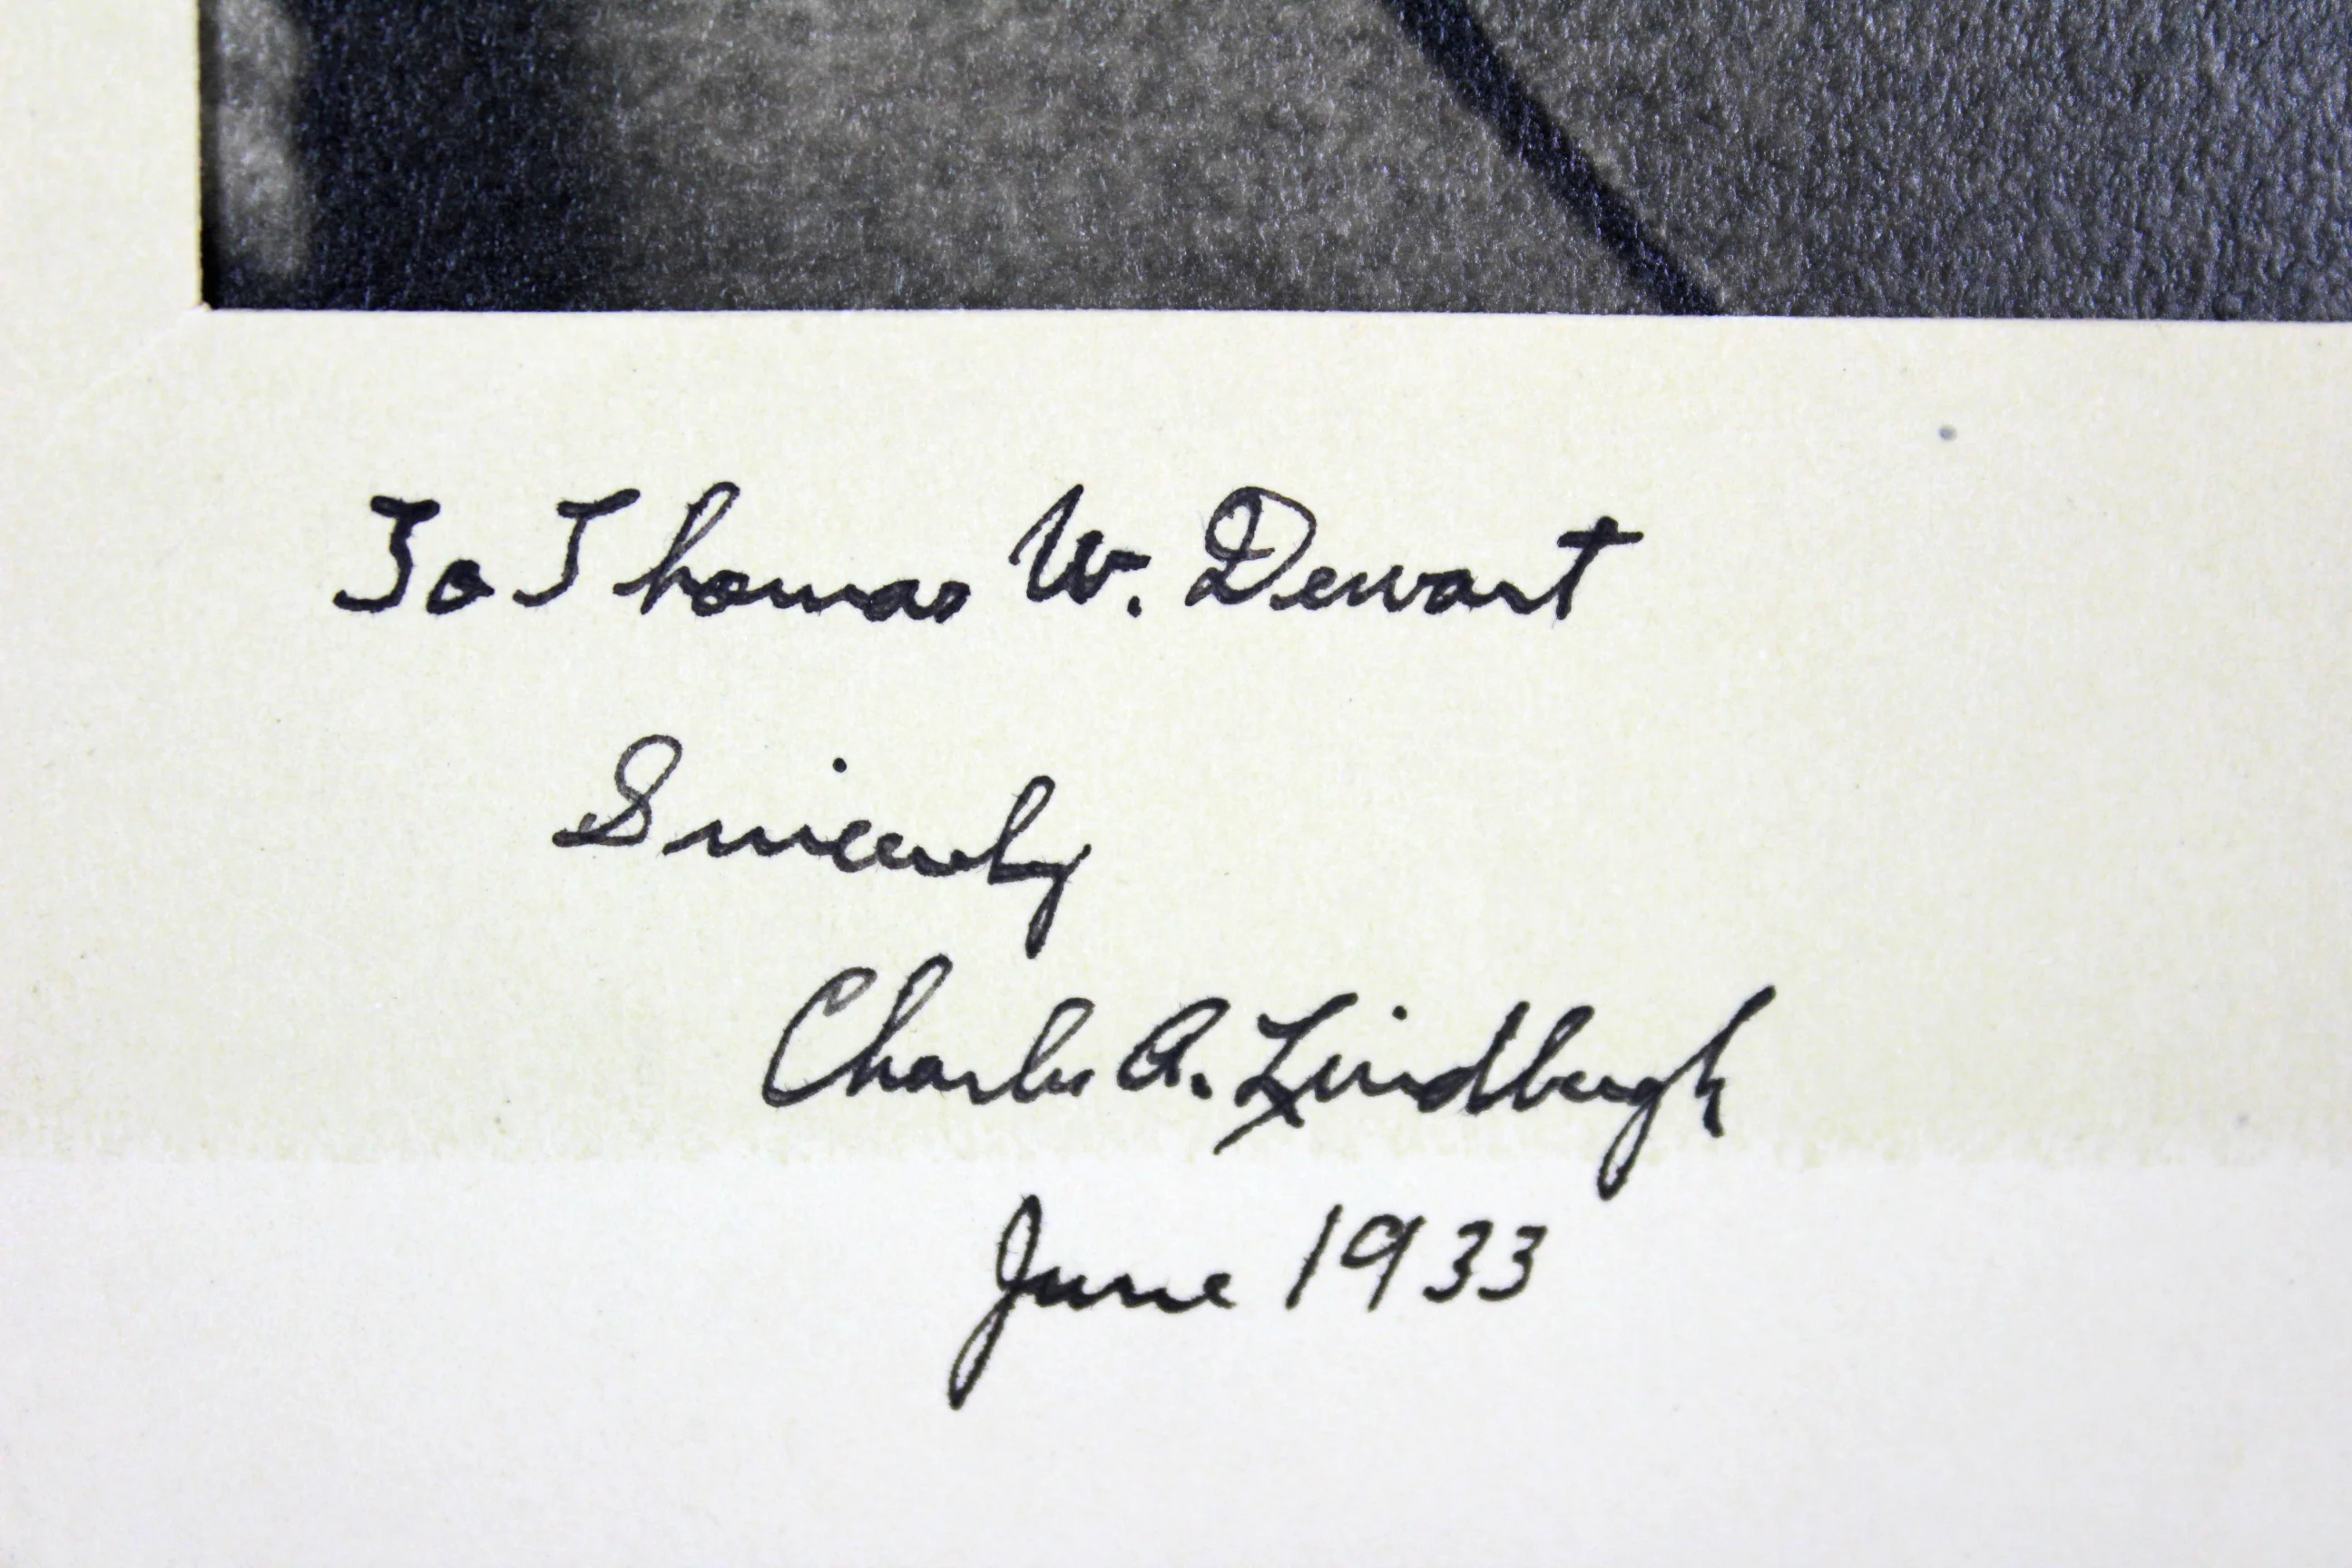 To Thomas W. Dewart
Sincerely
Charles A. Lindbergh
June 1933